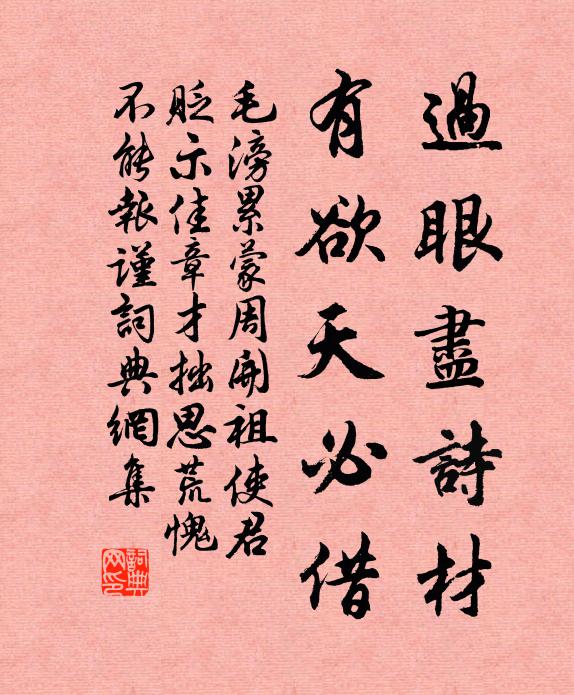 過眼盡詩材
有欲天必借
毛滂累蒙周開祖使君
貶示佳章才拙思荒愧
不能報謹詞典網集
詞典網印